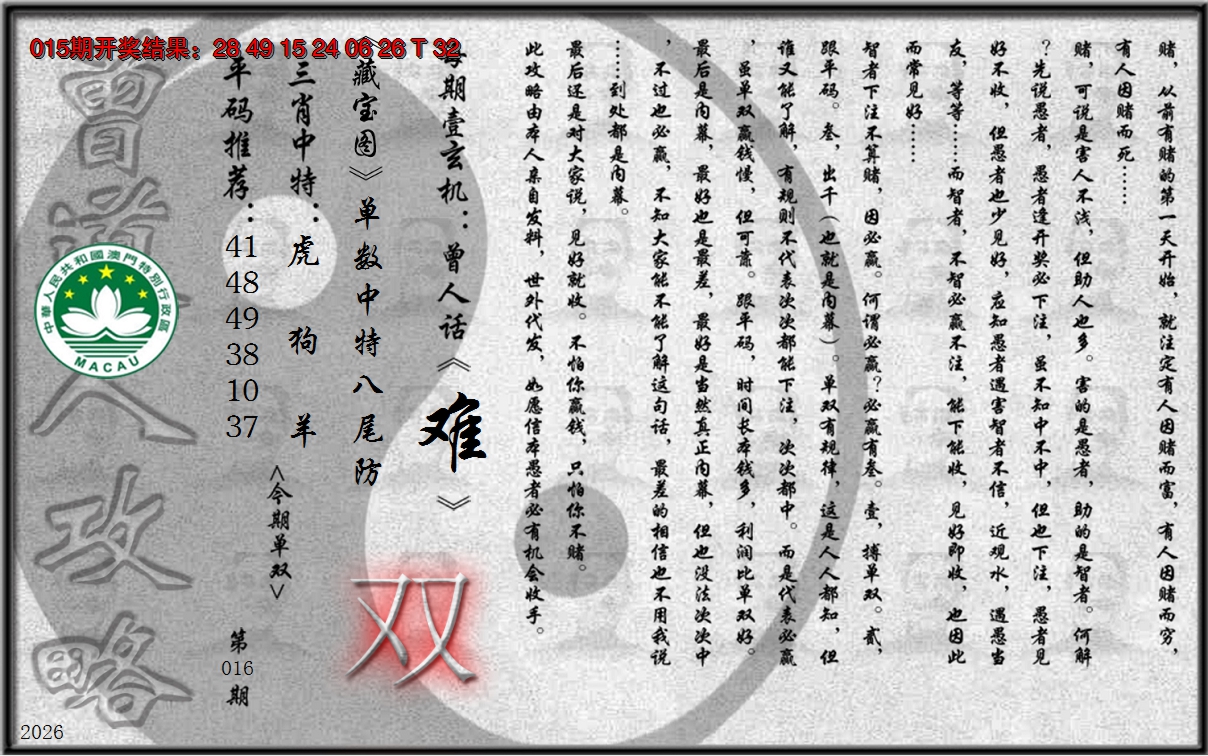 015期开奖结果：28 49 15 24 06 26 T 32
赌，从前有赌的第一天开始，就注定有人因赌而富，有人因赌而穷，
有人因赌而死……
赌，可说是害人不浅，但助人也多。害的是愚者，助的是智者。何解
？先说愚者，愚者逢开奖必下注，虽不知中不中，但也下注，愚者见
好不收，但愚者也少见好，应知愚者遇害智者不信，近观水，遇愚当
友，等等……而智者，不智必赢不注，能下能收，见好即收，也因此
而常见好……
智者下注不算赌，因必赢。何谓必赢？必赢有叁。壹，搏单双。贰，
跟平码。叁，出千（也就是内幕）。单双有规律，这是人人都知，但
谁又能了解，有规则不代表次次都能下注，次次都中。而是代表必赢
，虽单双赢钱慢，但可靠。跟平码，时间长本钱多，利润比单双好。
最后是内幕，最好也是最差，最好是当然真正内幕，但也没法次次中
，不过也必赢，不知大家能不能了解这句话，最差的相信也不用我说
……到处都是内幕。
最后还是对大家说，见好就收。不怕你赢钱，只怕你不赌。
此攻略由本人亲自发料，世外代发，如愿信本愚者必有机会收手。
每期壹玄机：曾人话《难》
《藏宝图》单数中特八尾防
双
三肖中特：虎 狗 羊
<今期单双>
平码推荐：
41
48
49
38
10
37
第
016
期
曾道人攻略
中華人民共和國澳門特別行政區
MACAU
2026